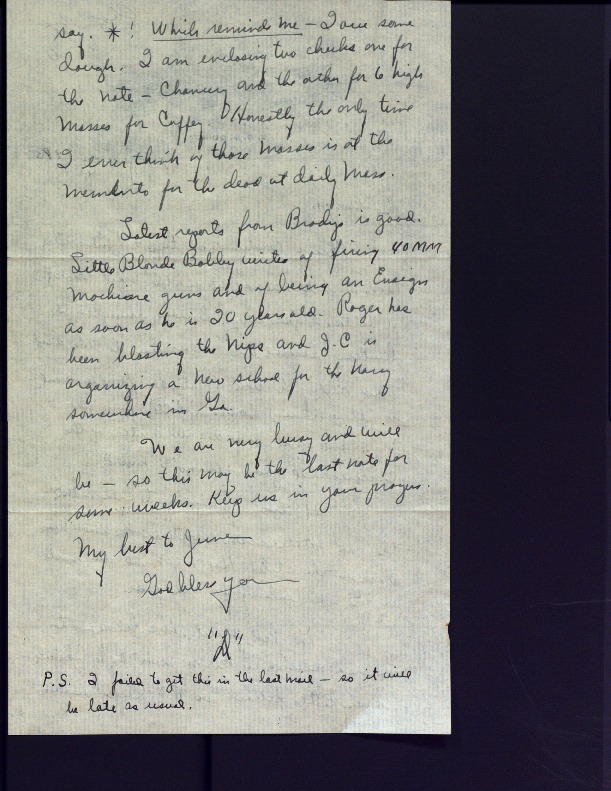 say. *! Which reminds me - I owe some
dough. I am enclosing two checks one for
the note - Chancery and the other for 6 high
Masses for Caffey. Honestly the only time
I ever think of those Masses is at the
memento for the dead at daily Mass.
Latest reports from Bradys is good.
Little Blonde Bobby writes of firing 40 MM
Machine guns and of being an Ensign
as soon as he is 20 years old. Roger has
been blasting the Nips and J.C is
organizing a new school for the Navy
somewhere in Ga.
We are very busy and will
be - so this may be the last note for
some weeks. Keep us in your prayers.
My best to June
God bless you
"D"
P.S. I failed to get this in the last mail - so it will
be late as usual.